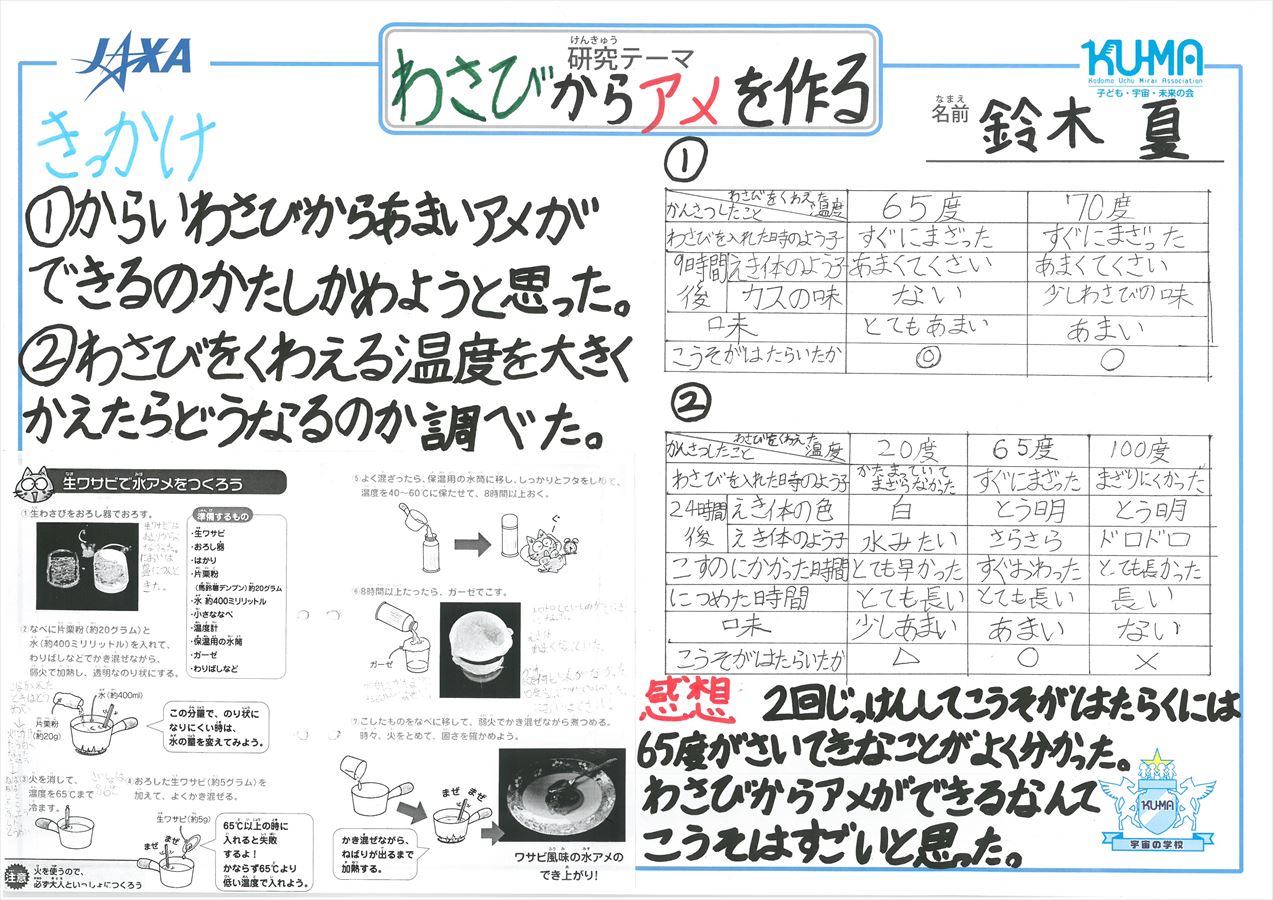 JAXA
けんきゅう
研究テーマ
わさびからアメを作る
KU-MA
Kodomo Uchu Mirai Association
子ども・宇宙・未来の会
なまえ
名前 鈴木 夏
きっかけ
①からいわさびからあまいアメが
できるのかたしかめようと思った。
②わさびをくわえる温度を大きく
かえたらどうなるのか調べた。
生ワサビで水アメをつくろう
①生わさびをおろし器でおろす。
準備するもの
・生ワサビ
・おろし器
・はかり
・片栗粉
(馬鈴薯デンプン)約20グラム
・水 約400ミリリットル
・小さななべ
・温度計
・保温用の水筒
・ガーゼ
・わりばしなど
②なべに片栗粉(約20グラム)と
水(約400ミリリットル)を入れて、
わりばしなどでかき混ぜながら、
弱火で加熱し、透明なのり状にする。
水(約400ml)
片栗粉
(約20g)
この分量で、のり状に
なりにくい時は、
水の量を変えてみよう。
③火を消して、
温度を65℃まで
冷ます。
④おろした生ワサビ(約5グラム)を
加えて、よくかき混ぜる。
生ワサビ(約5g)
まぜ まぜ
65℃以上の時に
入れると失敗
するよ!
かならず65℃より
低い温度で入れよう。
注意
火を使うので、
必ず大人といっしょにつくろう
⑤よく混ざったら、保温用の水筒に移し、しっかりとフタをしめて、
温度を40〜60℃に保たせて、8時間以上おく。
⑥8時間以上たったら、ガーゼでこす。
ガーゼ
⑦こしたものをなべに移して、弱火でかき混ぜながら煮つめる。
時々、火をとめて、固さを確かめよう。
まぜ まぜ
かき混ぜながら、
ねばりが出るまで
加熱する。
ワサビ風味の水アメの
でき上がり!
①
わさびをくわえた温度 かんさつしたこと 65度 70度
わさびを入れた時のよう子 すぐにまざった すぐにまざった
9時間後 えき体のよう子 あまくてくさい あまくてくさい
カスの味 ない 少しわさびの味
味 とてもあまい あまい
こうそがはたらいたか ◎ ○
②
わさびをくわえた温度 かんさつしたこと 20度 65度 100度
わさびを入れた時のよう子 かたまっていてまざらなかった すぐにまざった まざりにくかった
24時間後 えき体の色 白 とう明 とう明
えき体のよう子 水みたい さらさら ドロドロ
こすのにかかった時間 とても早かった すぐおわった とても長かった
につめた時間 とても長い とても長い 長い
味 少しあまい あまい ない
こうそがはたらいたか △ ○ ×
感想 2回じっけんしてこうそがはたらくには
65度がさいてきなことがよく分かった。
わさびからアメができるなんて
こうそはすごいと思った。
KU-MA
宇宙の学校